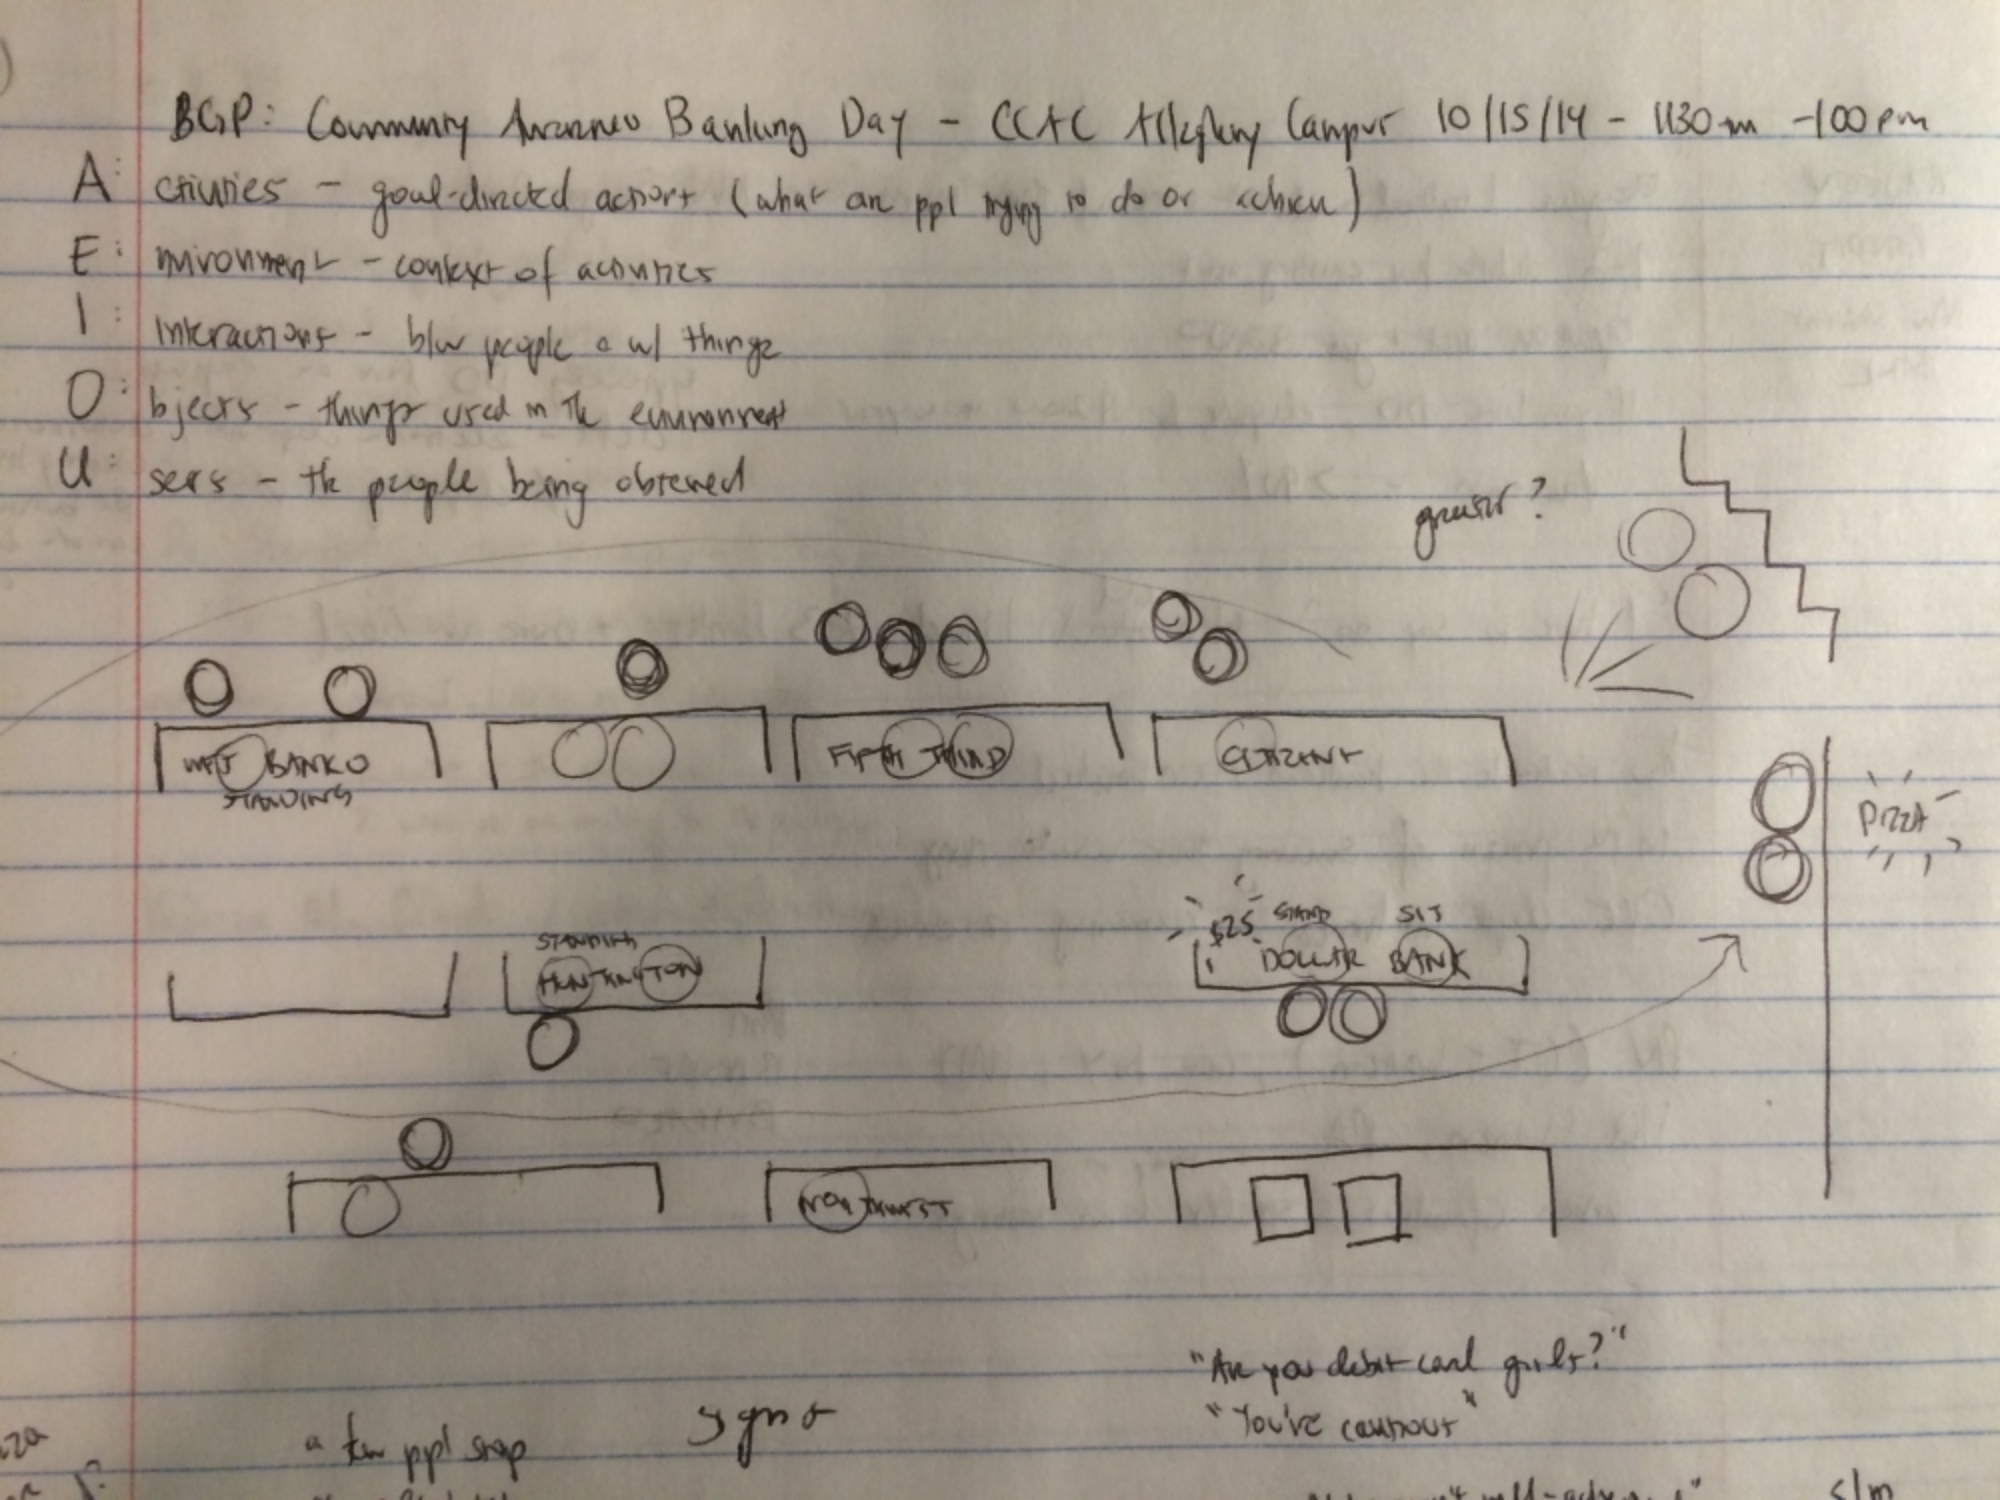 BGP: Community Awareness Banking Day - CCAC Allegheny Campus 10/15/14 - 1130am -100pm
A: ctivities - goal-directed actions (what are ppl trying to do or achieve)
E: nvironment - context of activities
I: Interactions - b/w people & w/ things
O: bjects - things used in the environment
U: sers - the people being observed
greeter?
BANKO
STANDING
FIFTH THIRD
CITIZENS
PIZZA
STANDING
HUNTINGTON
$25 STAND SIT
DOLLAR BANK
NORTHWEST
"Are you debit card girls?"
"You're cautious"
signs
a few ppl stop